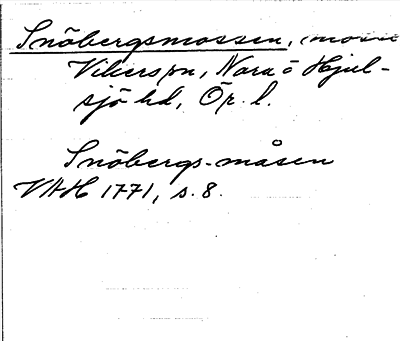 Snöbergsmossen, (mosse
Vikerspn, Nora o Hjul-
sjö hd, Ör. l.
Snöbergs-måsen
VAH 1771, s. 8.